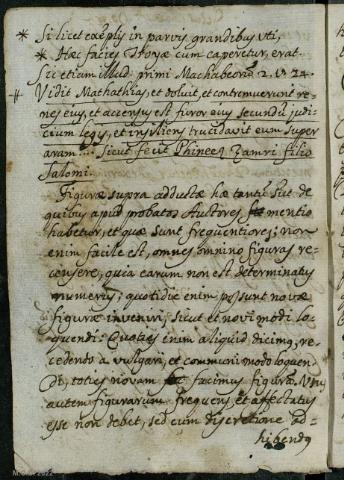 * Si licet exẽplis in parvis grandibus uti,
* Hæc facies Troyæ cum caperetur, erat.
Sic etiam illud primi Machabeorũ 2. v. 24.
Vidit Mathathias, et doluit, et contremuerunt re-
nes eius, et accensus est furor eius secundũ judi-
cium legis, et insiliens trucidavit eum super
aram.... Sicut fecit Phinees Zamri filio
Salomi.
Figuræ supra adductæ hæ tantũ sũt de
quibus apud probatos Auctores mentio
habetur, et quæ sunt frequentiores; non
enim facile est, omnes omnino figuras re-
censere, quia earum non est determinatus
numerus; quotidie enim possunt novæ
figuræ inveniri, sicut et novi modi lo-
quendi: Quoties enim aliquid dicimus, re-
cedendo a vulgari, et communi modo loquen-
di, toties novam facimus figurã. Usus
autem figurarum frequens, et affectatus
esse non debet, sed cum discretione ad-
hibendus